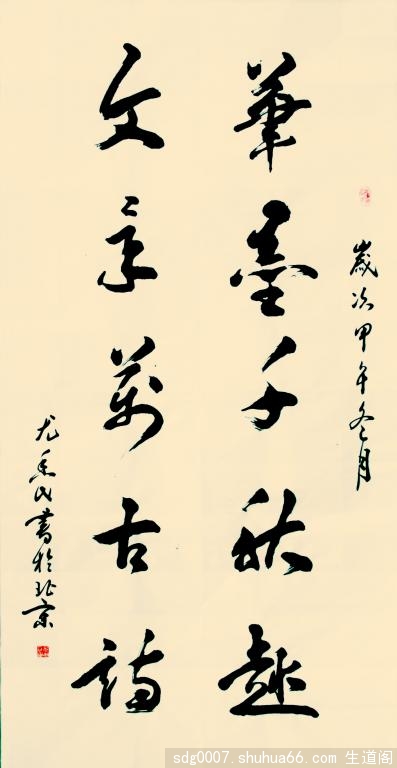 歲次甲午冬月
筆墨千秋趣
文章萬古詩
尤意民書於北京
sdg0007.shuhua66.com 生道阁